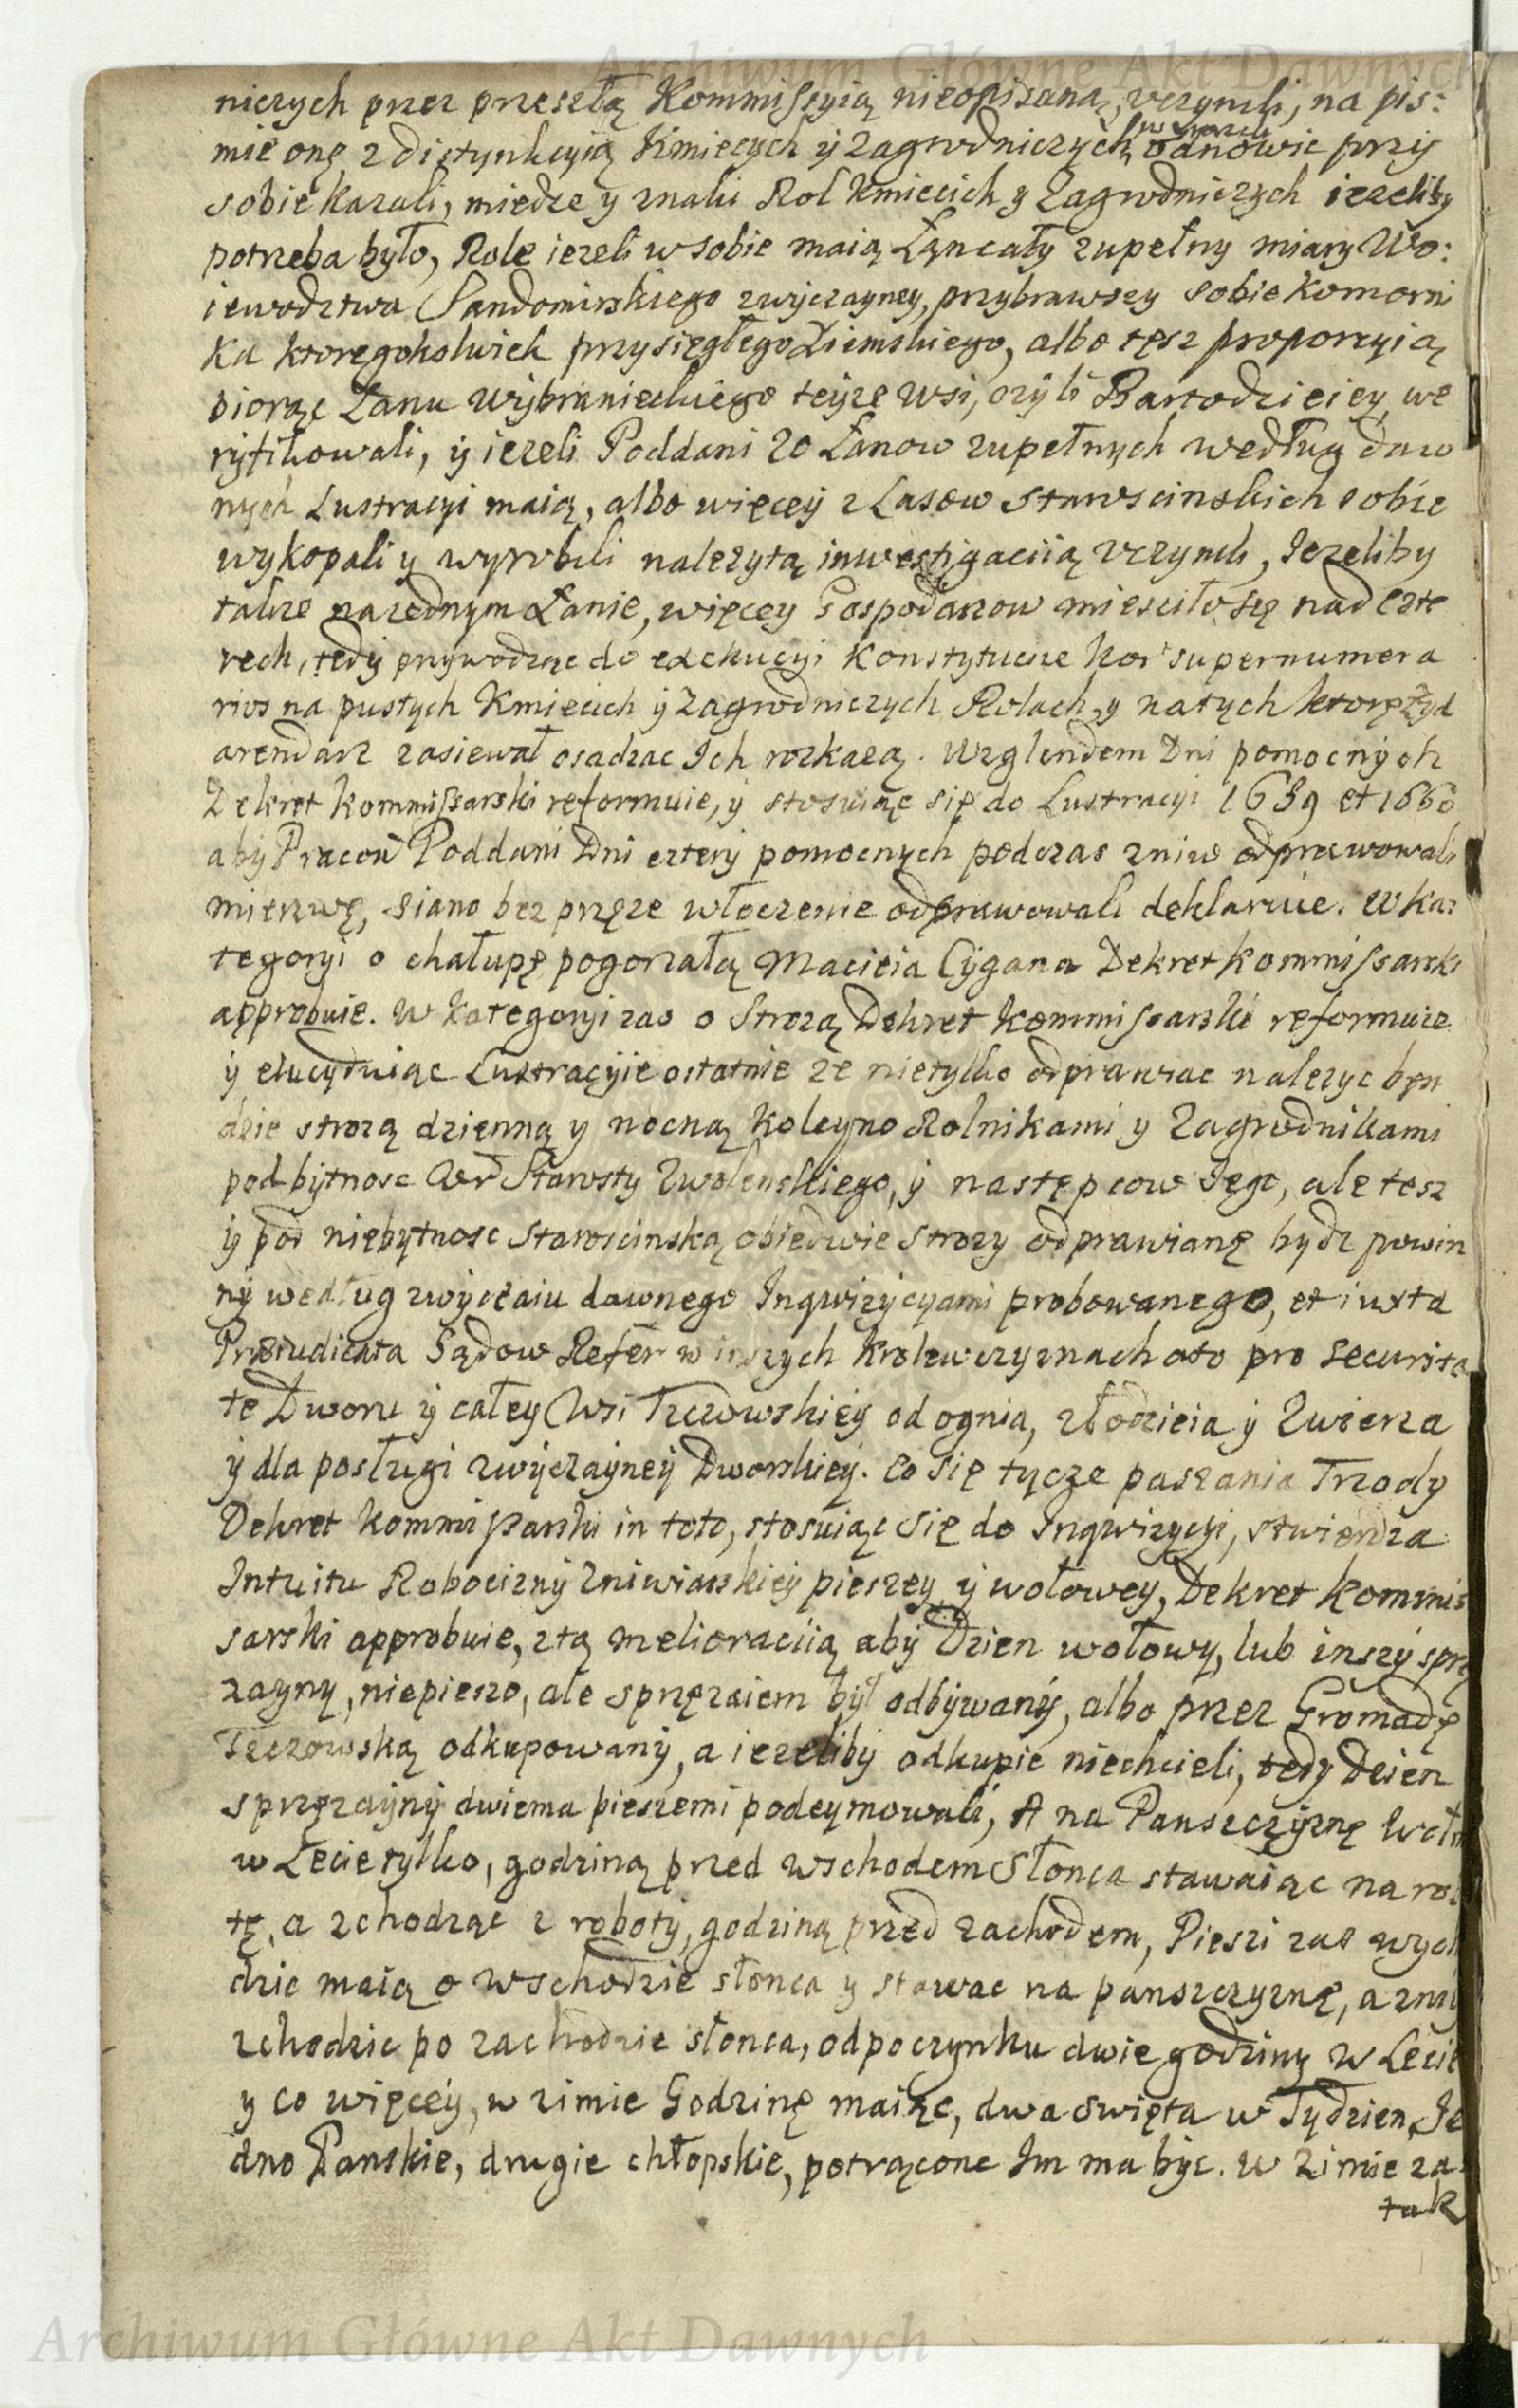 Archiwum Główne Akt Dawnych
niczych przez przeszłą Kommissyią nieopisaną, vczynili, na pis:
mie onę z distynkcyią Kmiecych ÿ Zagrodniczych, odnowic przÿ
sobie kazali, miedze y znaki Rol Kmiecich y Zagrodniczych iezeliby
potrzeba było, Role iezeli w sobie maią Łan cały zupełny miary Wo:
iewodztwa Sandomirskiego zwyczayney, przybrawszy sobie Komorni
ka ktoregokolwiek przysięgłego Ziemskiego, albo tęsz proporcyią
biorąc Łanu wÿbranieckiego teÿze wsi, czÿli Bartodzieiey, we
rÿfikowali, ÿ iezeli Poddani 20 Łanow zupełnych według daw
nych Lustracyi maią, albo więceÿ z Lasow Starościnskich sobie
wykopali y wyrobili nalezytą inwestigaciią vczynili, Jezeliby
takze na iednym Łanie, więcey Gospodarzow miesciło się nad czte
rech, tedÿ przywodząc do exekucyi Konstytucie hos supernumera
rios na pustych Kmiecich ÿ Zagrodniczych Rolach, y na tych ktorę Zyd
arendarz zasiewał osadzac Ich rozkazą. Wzglendem Dni pomocnÿch
Dekret Kommissarski reformuie, ÿ stosuiąc się do Lustracyi 1639 et 1660
abÿ Pracow Poddani Dni czterÿ pomocnych podczas zniw odprawowali
mierzwę, siano bez przęze włoczenie odprawowali deklaruie. W ka:
tegoryi o chałupę pogorzałą Macieia Cÿgana Dekret Kommissarski
approbuie. W Kategoryi zas o Strozą Dekret Kommissarski reformuie
ÿ elucyduiąc Lustracyie ostatnie ze nietylko odprawiac nalezyc będ
dzie strozą dzienną y nocną koleyno Rolnikami y Zagrodnikami
pod bytnosc Ur Starosty Zwolenskiego, ÿ następcow Jego, ale tesz
ÿ pod niebytnosc Starościnską obiedwie strozy odprawianę bydz powin
nÿ według zwÿczaiu dawnego Inqwizÿcyami probowanego, et iuxta
Præiudicata Sądow Refer w inszych Krolewczyznach ato pro securita
te Dworu ÿ całey Wsi Tczowskiey od ognia, złodzieia ÿ Zwierza
ÿ dla posługi zwÿczayneÿ Dworskieÿ. Co się tycze paszania Trzody
Dekret Kommissarski in toto, stosuiąc się do Inqwizycyi, stwierdza
Intuitu Robociznÿ zniwiarskieÿ pieszey ÿ wołowey, Dekret Kommis
sarski approbuie, z tą melioraciią abÿ Dzien wołowy, lub inszÿ sprzę
zayny, niepieszo, ale sprzęzaiem był odbÿwanÿ, albo przez Gromadę
Tczowską odkupowanÿ, a iezelibÿ odkupic niechcieli, tedy Dzien
sprzęzaÿnÿ dwiema pieszemi podeymowali, A na Panszczÿznę
w Lecie tylko, godziną przed wschodem Słonca stawaiąc na ro
tę, a zchodząc z robotÿ, godziną przed zachodem, Pieszi zas wych
dzic maią o wschodzie słonca y stawac na panszczyznę, a z niÿ
zchodzic po zachodzie słonca, odpoczynku dwie godziny w Lecie
y co więcey, w zimie Godzinę maiąc, dwa swięta w Tydzien, Je
dno Panskie, drugie chłopskie, potrącone Im ma byc. W Zimie za
tak
Archiwum Główne Akt Dawnych